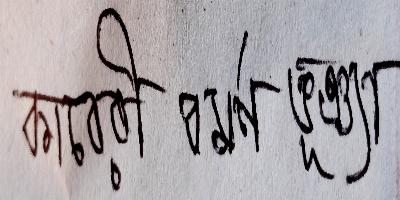 কাবেরী বর্মন ভূঞ্যা